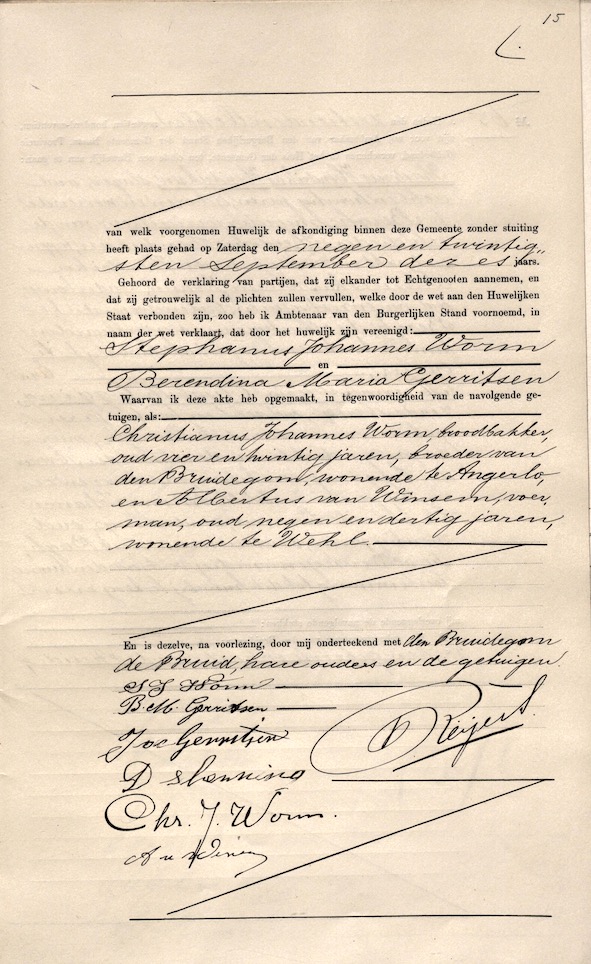 15
van welk voorgenomen Huwelijk de afkondiging binnen deze Gemeente zonder stuiting
heeft plaats gehad op Zaterdag den negen en twintig„
sten September dezes jaars.
Gehoord de verklaring van partijen, dat zij elkander tot Echtgenooten aannemen, en
dat zij getrouwelijk al de plichten zullen vervullen, welke door de wet aan den Huwelijken
Staat verbonden zijn, zoo heb ik Ambtenaar van den Burgerlijken Stand voornoemd, in
naam der wet verklaart, dat door het huwelijk zijn vereenigd:
Stephanus Johannes Worm
en
Berendina Maria Gerritsen
Waarvan ik deze akte heb opgemaakt, in tegenwoordigheid van de navolgende ge-
tuigen, als:
Christianus Johannes Worm, broodbakker,
oud vier en twintig jaren, broeder van
den Bruidegom, wonende te Angerlo,
en Albertus van Winsem, voer„
man, oud negen en dertig jaren,
wonende te Wehl.
En is dezelve, na voorlezing, door mij onderteekend met den Bruidegom
de Bruid, hare ouders en de getuigen.
S J Worm
B. M. Gerritsen
Gerritsen
D
Chr. J. Worm.
A v Winsem